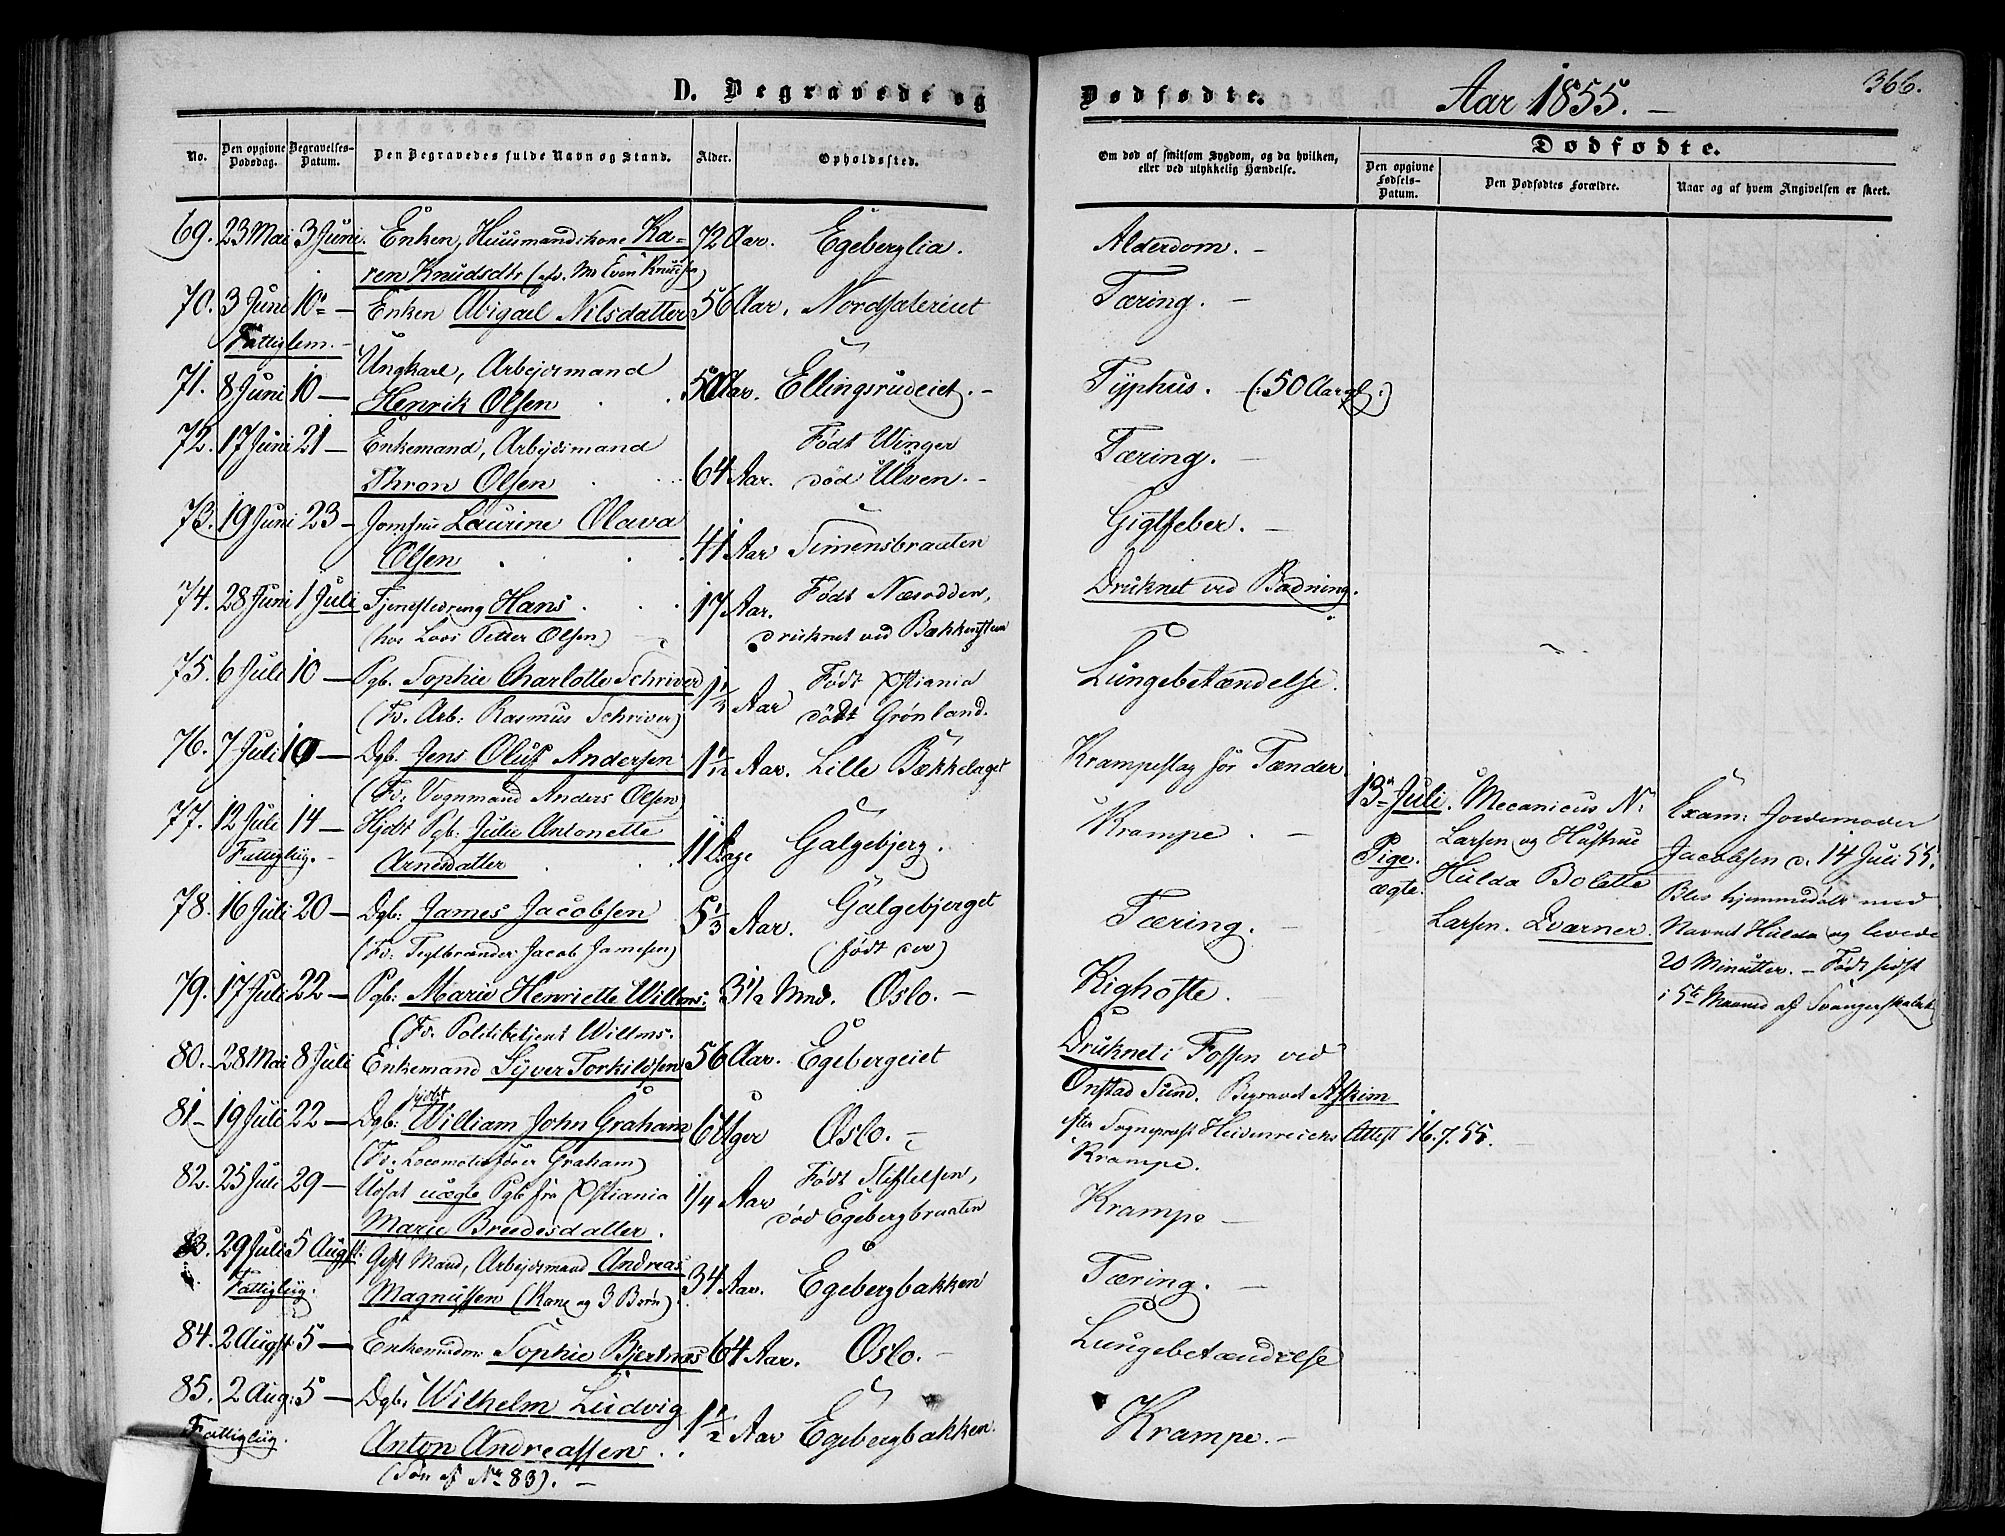 D. Begravede og Dødfødte. Aar 1855. 366.
No. Den opgivne Dødsdag. Begravelses-Datum. Den Begravedes fulde Navn og Stand. Alder. Opholdssted. Om død af smitsom Sygdom, og da hvilken, eller ved ulykkelig Hændelse. Dødfødte. Den opgivne Fødsels-Datum. Den Dødfødtes Forældre. Naar og af hvem Angivelsen er skeet.
69. 23 Mai 3 Juni. Enken, Huusmandskone Ka- 72 Aar. Egeberglia. Alderdom. -
ren Knudsdtr (Even Knudsen)
70. 3 Juni 10 - Enken Abigael Nilsdatter 56 Aar. Nordsæteriet Tæring. -
Fattiglem. -
71. 8 Juni 10 - Ungkarl, Arbejdsmand
Henrik Olsen 50 Aar. Ellingsrudeiet. - Typhus. - (: 50 Aar gl :)
72. 17 Juni 21 - Enkemand, Arbejdsmand Født Winger
Thron Olsen 64 Aar. død Ulven. - Tæring. -
73. 19 Juni 23 - Jomfrue Laurine Olava
Olsen 41 Aar Simensbraaten Gigtfeber. -
74. 28 Juni 1 Juli Tjenestedreng Hans 17 Aar. Født Næsodden, Druknet ved Badning.
(hos Loos Petter Olsen) druknet ved Bækkensteen
75. 6 Juli 10 - Pgb. Sophie Charlotte Schriver 1 1/2 Aar Født Xstiania Lungebetændelse.
(Fv. Arb: Rasmus Schriver) død Grønland.
76. 7 Juli 10 - Dgb. Jens Oluf Andersen 1 1/12 Aar. Lille Bækkelaget Krampeslag for Tænder
(Fv: Vognmand Anders Olsen)
77. 12 Juli 14 - Hjdt Pgb: Julie Antonette
Fattiglig. - Arnesdatter 11 Dage Galgebjerg. Krampe. -
13 Juli. Mecanicus N: Exam: Jordemoder
Pige. Larsen og Hustrue Jacobsen d. 14 Juli 55.
ægte. Hulda Bolette Blev hjemmedøbt med
Larsen. Qværner. Navnet Hulda og levede
20 Minutter. - Født sidst
i 5te Maaned af Svangerskabet
78. 16 Juli 20 - Dgb: James Jacobsen 5 1/3 Aar. Galgebjerget Tæring. -
(Fv: Teglbrænder Jacob Jamesen) (født der)
79. 17 Juli 22 - Pgb: Marie Henriette Willms: 3 1/2 Mnd. Oslo. - Kighoste. -
(Fv. Politibetjent Willms.
80. 28 Mai 8 Juli Enkemand Syver Torkildsen 56 Aar. Egebergeiet Druknet i Fossen ved
Onstad Sund. Begravet Askim
efter Sognepræst Heidenreichs Attest 16.7.55.
81 - 19 Juli 22 - Dgb: hjdbt William John Graham 6 Uger Oslo. - Krampe.
(Fv. Locomotivfører Graham)
82. 25 Juli 29 - Udsat uægte Pgb fra Xstiania 1/4 Aar Født Stiftelsen, Krampe -
Marie Breedesdatter. død Egebergbraaten
83. 29 Juli 5 Augst. Gift Mand, Arbejdsmand Andreas
Fattiglig. Magnussen (Kone og 3 Børn). 34 Aar. Egebergbakken Tæring. -
84. 2 Augst 5 - Enkemadm: Sophie Bjertnæs 64 Aar. Oslo. - Lungebetændelse
85. 2 Aug: 5 - Dgb. Wilhelm Ludvig
Fattiglig. Anton Andreassen. 1 1/2 Aar Egebergbakken. Krampe. -
(Søn af Nr 83). -